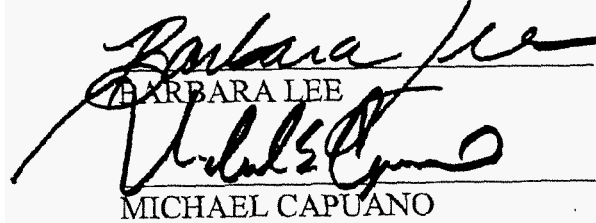 Barbara Lee
BARBARA LEE
Michael E Capuano
MICHAEL CAPUANO